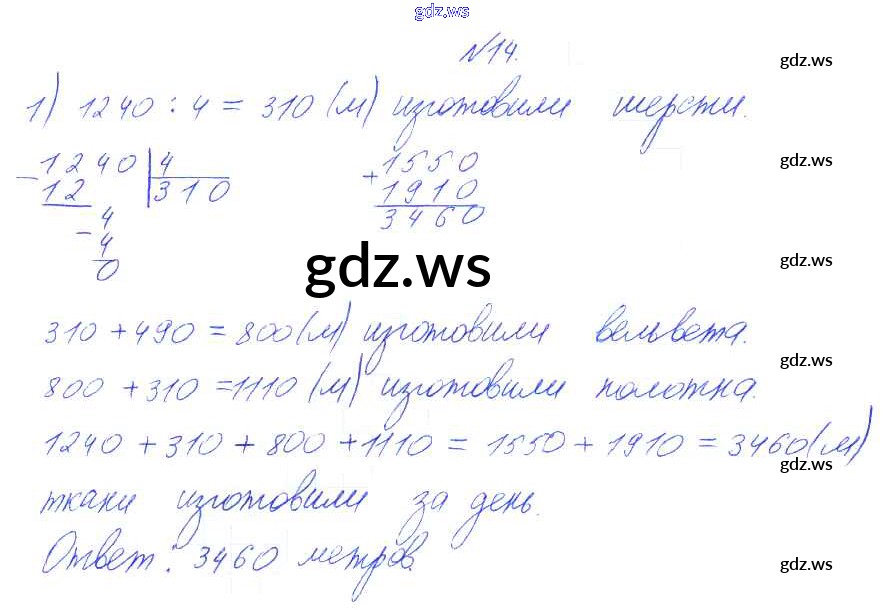 gdz.ws
№14.
gdz.ws
1) 1240 : 4 = 310 (м) изготовили шерсти.
1240 | 4
- 12 310
- 4
4
0
+ 1550
1910
3460
gdz.ws
gdz.ws
gdz.ws
310 + 490 = 800 (м) изготовили вельвета.
gdz.ws
800 + 310 = 1110 (м) изготовили полотна.
1240 + 310 + 800 + 1110 = 1550 + 1910 = 3460 (м)
gdz.ws
ткани изготовили за день.
Ответ: 3460 метров.
gdz.ws